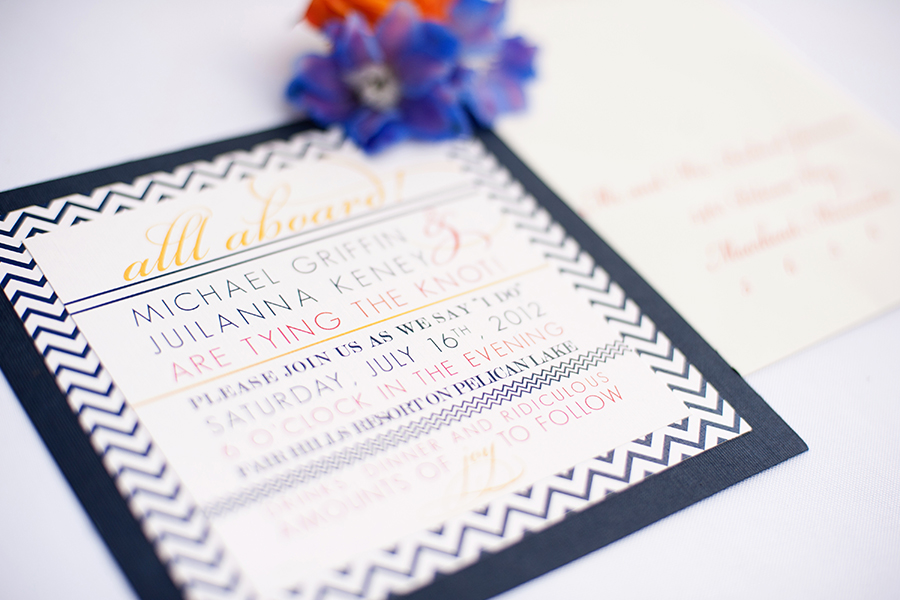 alll aboard!
MICHAEL GRIFFIN &
JUILANNA KENEY
ARE TYING THE KNOT!
PLEASE JOIN US AS WE SAY "I DO"
SATURDAY, JULY 16TH, 2012
6 O'CLOCK IN THE EVENING
FAIR HILLS RESORT ON PELICAN LAKE
DRINKS, DINNER AND RIDICULOUS
AMOUNTS OF joy TO FOLLOW
Mr and Mrs